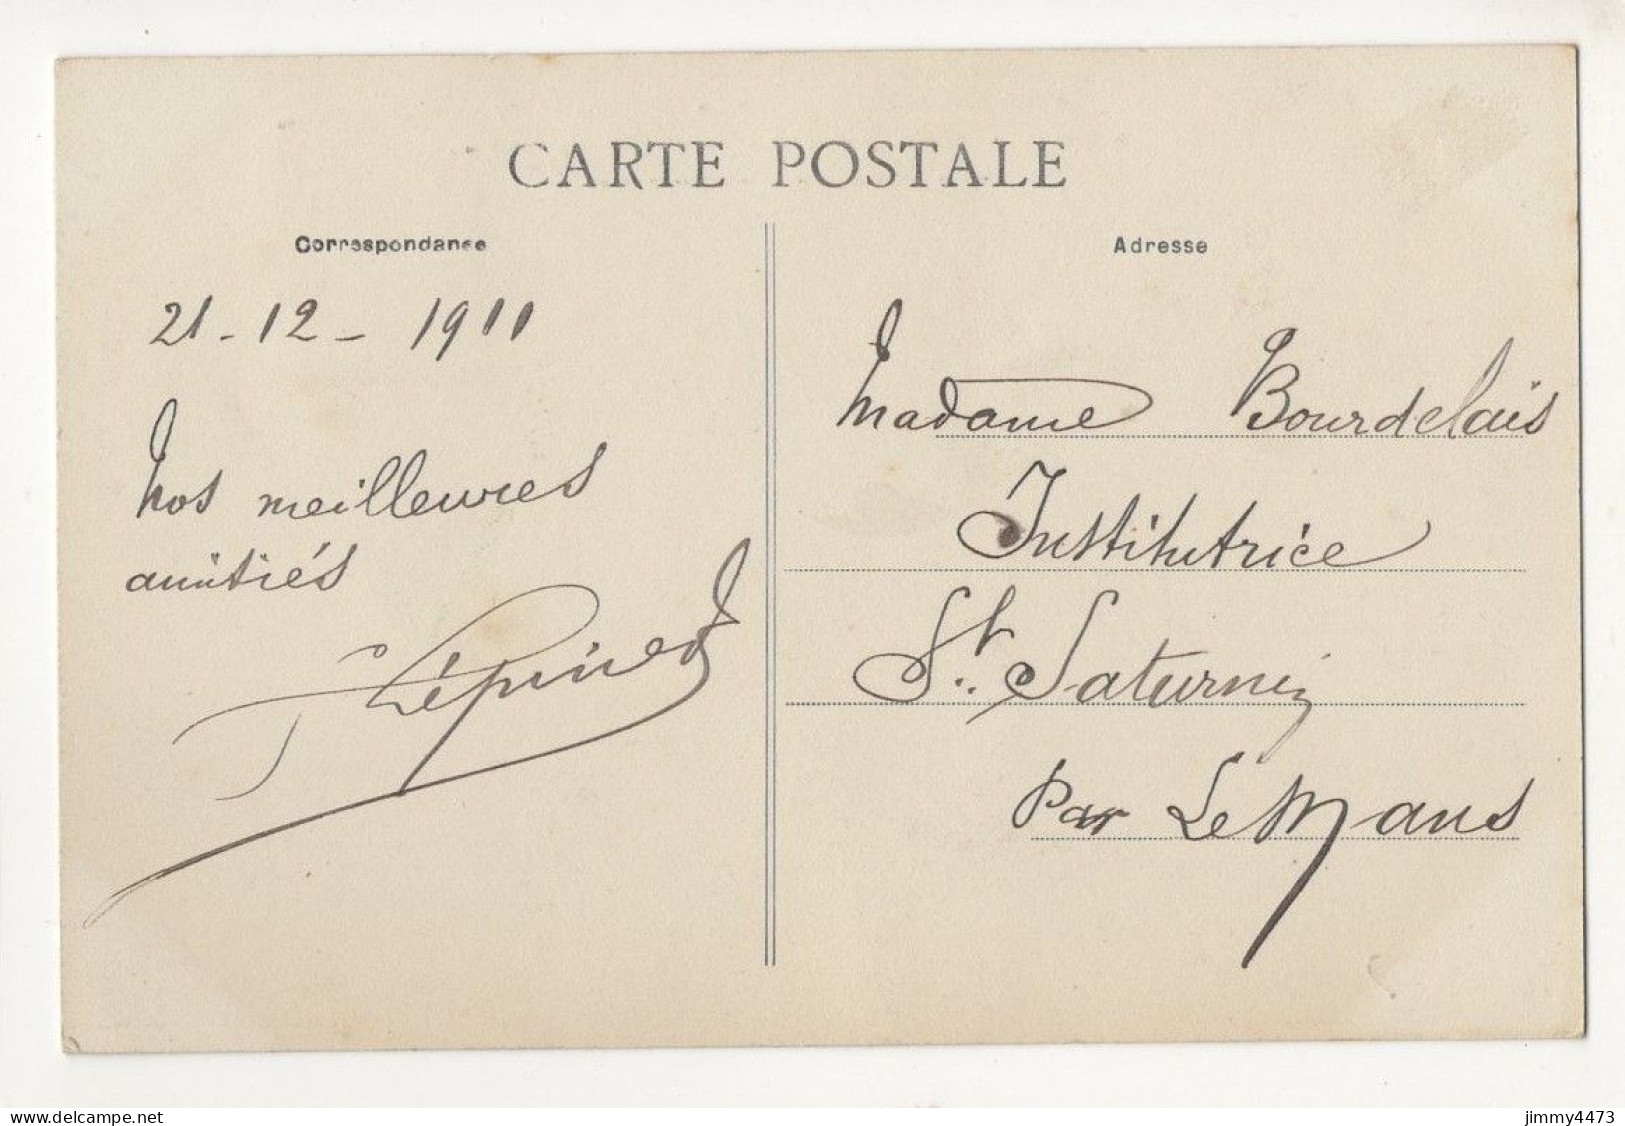 CARTE POSTALE
Correspondance
21 - 12 - 1911
Nos meilleures
amitiés
Adresse
Madame Bourdelais
Institutrice
St. Saturnin
Par Le Mans
www.delcampe.net
jimmy4473